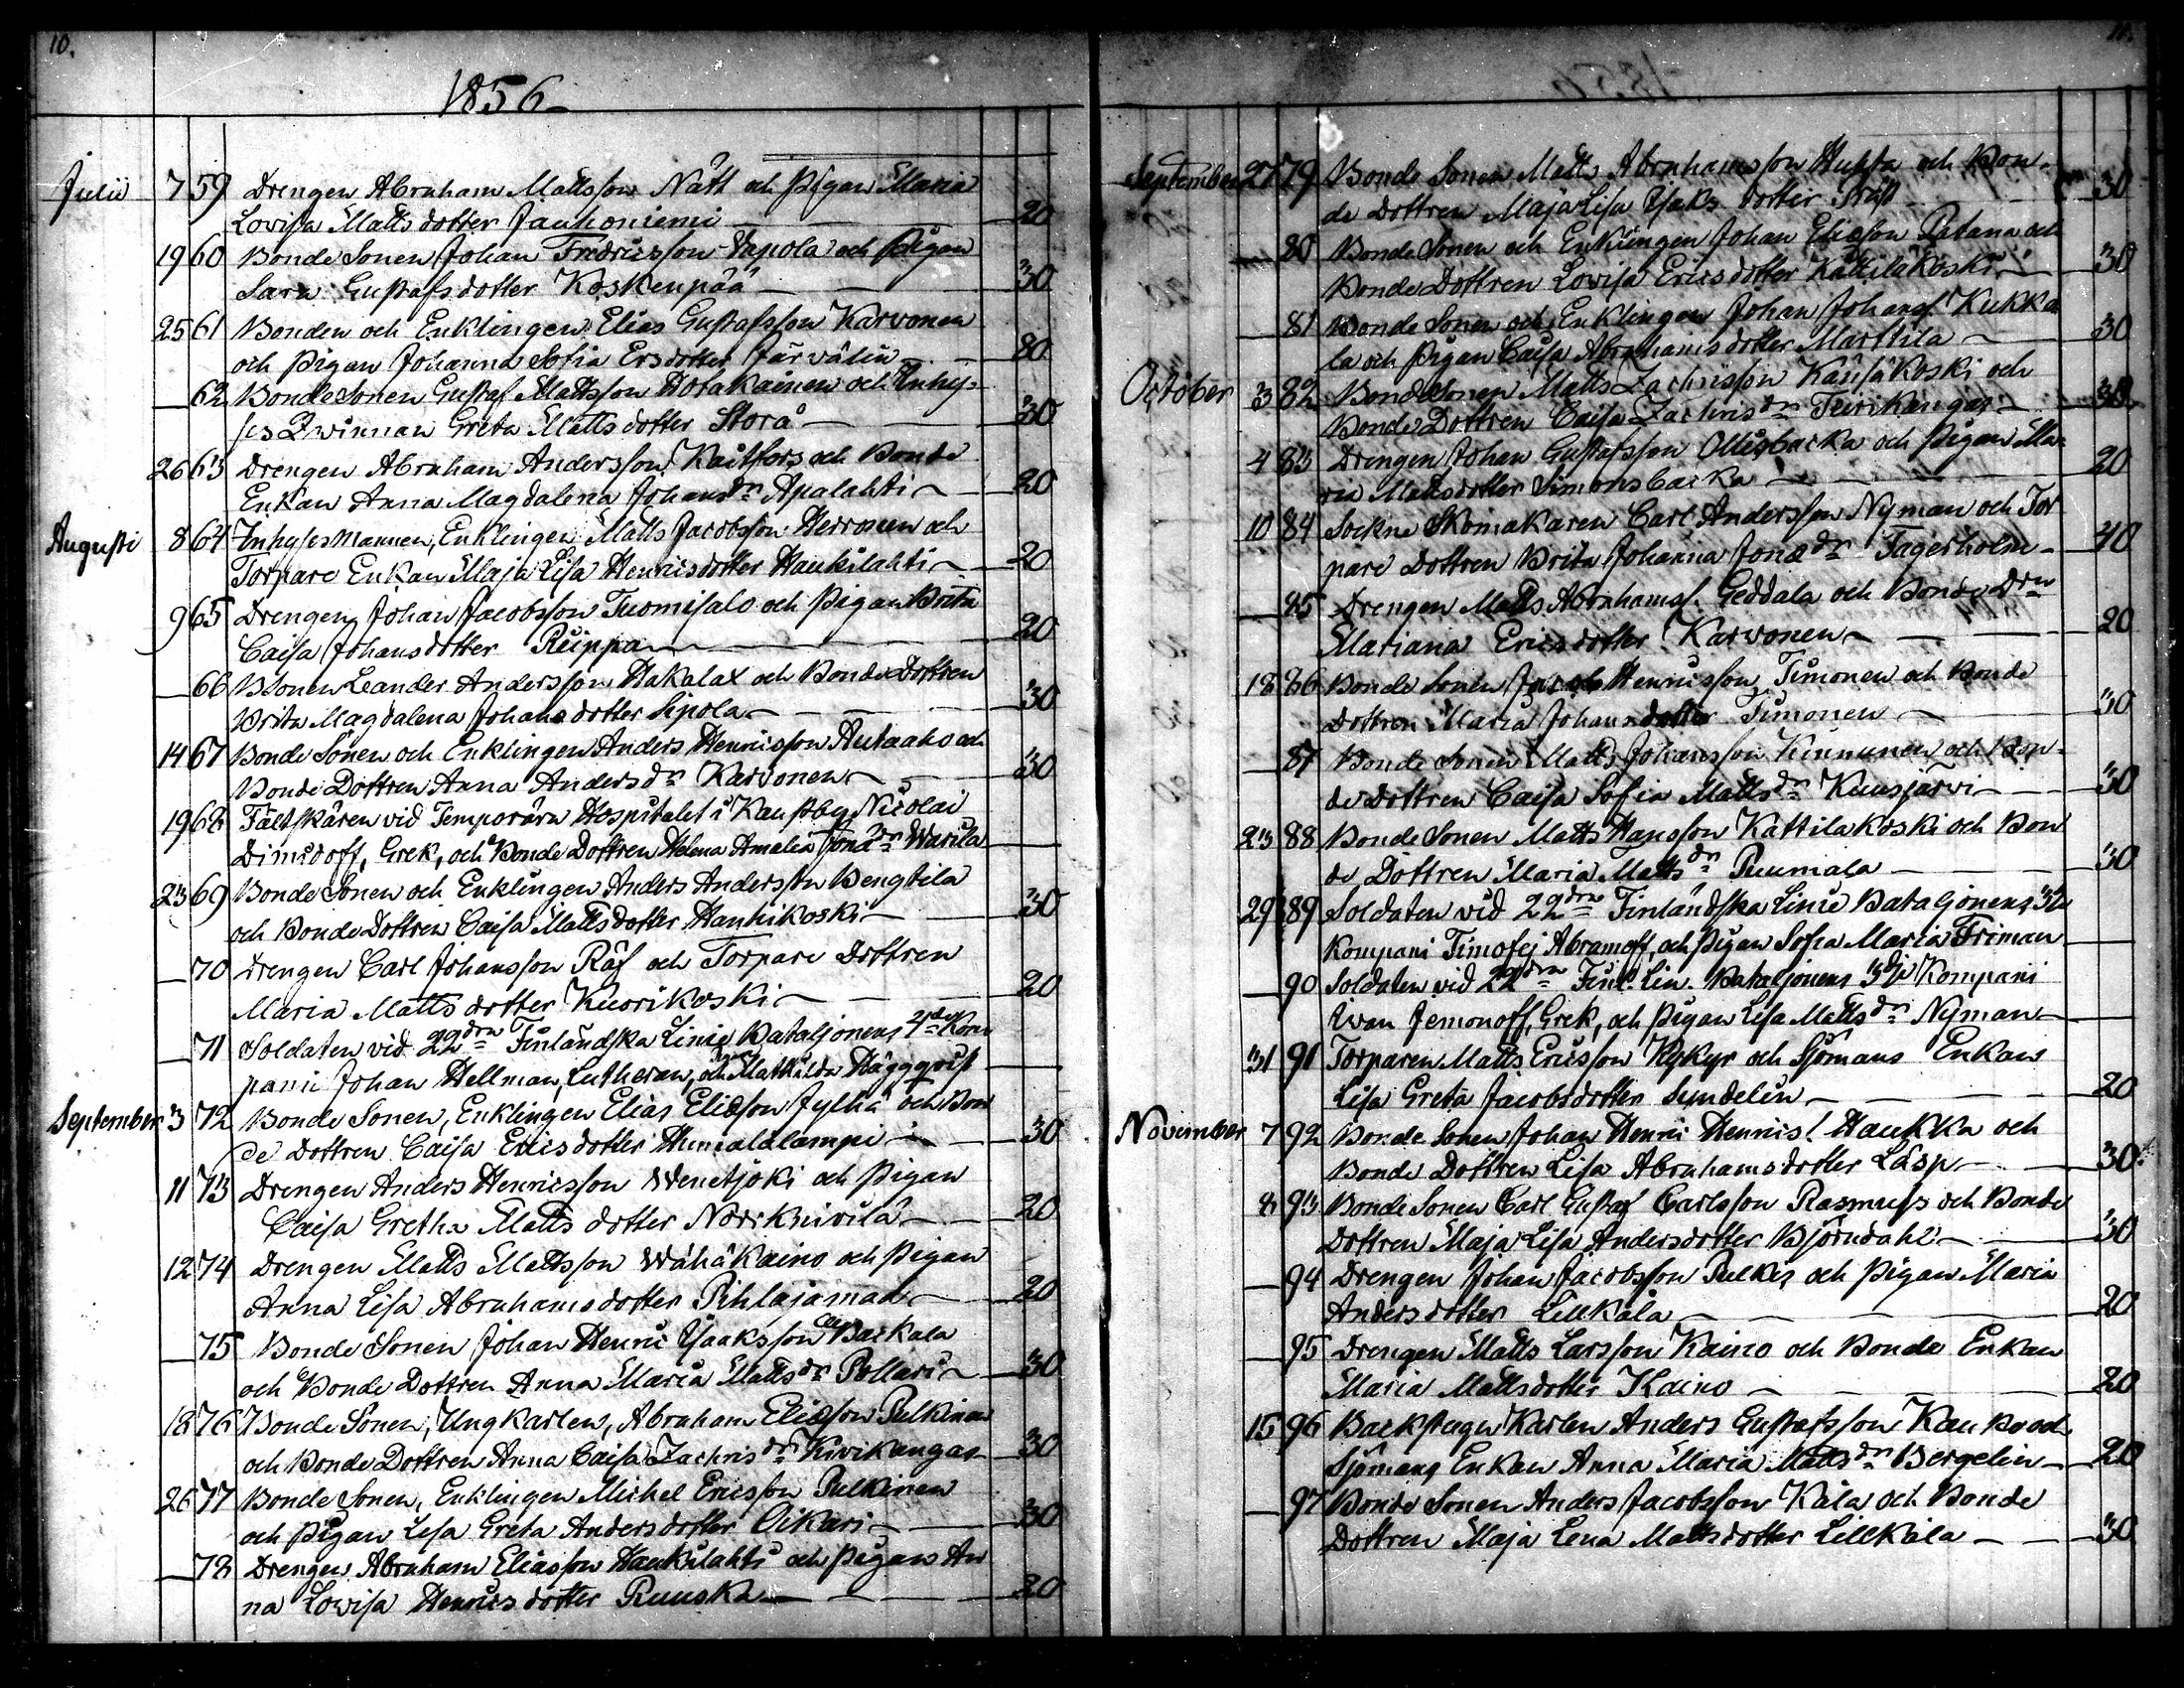 10.
1856
Julii 7 59 Drengen Abraham Mattsson Nätt och Pigan Maria
Lovisa Matts dotter Jauhoniemi — 20
19 60 Bonde Sonen Johan Fredricsson Vapola och Pigan
Sara Gustafs dotter Koskenpää — 30
25 61 Bonden och Enklingen Elias Gustafsson Karvonen
och Pigan Johanna Sofia Ersdotter Järvälin — 80
— 62 Bonde Sonen Gustaf Mattsson Hotakainen och Inhy-
ses Qwinnan Greta Matts dotter Storå — 30
26 63 Drengen Abraham Andersson Kaitfors och Bonde
Enkan Anna Magdalena Johansdr Apalahti — 20
Augusti 8 64 Inhyses Mannen, Enklingen Matts Jacobsson Herronen och
Torpare Enkan Maja Lisa Henricsdotter Haukilahti — 20
9 65 Drengen Johan Jacobsson Tuomisalo och Pigan Brita
Caisa Johansdotter Riippa — 20
— 66 B Sonen Leander Andersson Hakalax och Bonde Dottren
Brita Magdalena Johans dotter Sipola — 30
14 67 Bonde Sonen och Enklingen Anders Henricsson Autaaho och
Bonde Dottren Anna Andersdr Karvonen — 30
19 68 Fältskären vid Temporära Hospitalet i Kaustby Nicolai
Dimidoff, Grek, och Bonde Dottren Helena Amalia Jonädr Warila —
23 69 Bonde Sonen och Enklingen Anders Andersson Bengtila
och Bonde Dottren Caisa Mattsdotter Hanhikoski — 30
— 70 Drengen Carl Johansson Räf och Torpare Dottren
Maria Matts dotter Kuorikoski — 20
— 71 Soldaten vid 22dra Finländska Linie Bataljonens 4de Kom
pani Johan Hellman, Lutheran, och Mathilda Häggqvist —
September 3 72 Bonde Sonen, Enklingen Elias Eliasson Jylhä och Bon
de Dottren Caisa Ericsdotter Humalalampi — 30
11 73 Drengen Anders Henricsson Wenetjoki och Pigan
Caisa Gretha Matts dotter Noriknivilä — 20
12 74 Drengen Matts Mattsson Wähäkaino och Pigan
Anna Lisa Abrahamsdotter Pihlajamaa — 20
— 75 Bonde Sonen Johan Henric Isaksson Backala
och Bonde Dottren Anna Maria Mattsdr Pollari — 30
18 76 Bonde Sonen, Ungkarlen, Abraham Eliasson Pulkinen
och Bonde Dottren Anna Caisa Zachrisdr Kivikangas — 30
26 77 Bonde Sonen, Enklingen Michel Ericsson Pulkinen
och Pigan Lisa Greta Andersdotter Oikari — 30
— 78 Drengen Abraham Eliasson Haukilahti och Pigan An
na Lowisa Henricsdotter Ruuska — 20
September 27 79 Bonde Sonen Matts Abrahamsson Huppa och Bon-
de Dottren Maja Lisa Isaks dotter — 30
— 80 Bonde Sonen och Enklingen Johan Eliasson Patana och
Bonde Dottren Lovisa Ericsdotter Kattilakoski — 30
— 81 Bonde Sonen och Enklingen Johan Johanss. Kukka
la och Pigan Caisa Abrahams dotter Marttila — 30
October 3 82 Bonde Sonen Matts Zachrisson Känsäkoski och
Bonde Dottren Caisa Zachrisdr Teirikangas — 30
4 83 Drengen Johan Gustafsson Ollisbacka och Pigan Ma-
ria Mattsdotter Simonsbacka — 20
10 84 Sockne Skomakaren Carl Andersson Nyman och Tor
pare Dottren Brita Johanna Jonädr Fagerholm — 40
— 85 Drengen Matts Abrahams. Geddala och Bonde Drn
Mariana Ericsdotter Karvonen — 20
18 86 Bonde Sonen Jacob Henricsson Timonen och Bonde
Dottren Maria Johansdotter Timonen — 30
— 87 Bonde Sonen Matts Johansson Kinnunen och Bon-
de Dottren Caisa Sofia Mattsdr Kuusjärvi — 30
23 88 Bonde Sonen Matts Hansson Kattilakoski och Bon
de Dottren Maria Mattsdr Puumala — 30
29 89 Soldaten vid 22dra Finländska Linie Bataljonens 3de
Kompani Timofej Abramoff, och Pigan Sofia Maria Friman —
— 90 Soldaten vid 22dra Finl. Lin. Bataljonens 3dje Kompani
Ivan Jemonoff, Grek, och Pigan Lisa Mattsdr Nyman —
31 91 Torparen Matts Ericsson Kykyr och Sjömans Enkan
Lisa Greta Jacobsdotter Sundelin — 20
November 7 92 Bonde Sonen Johan Henric Henrics. Haukka och
Bonde Dottren Lisa Abrahamsdotter Läsp — 30
8 93 Bonde Sonen Carl Gustaf Carlsson Rasmuss och Bonde
Dottren Maja Lisa Andersdotter Björndahl — 30
— 94 Drengen Johan Jacobsson Pulkis och Pigan Maria
Anders dotter Lillkåla — 20
— 95 Drengen Matts Larsson Kaino och Bonde Enkan
Maria Mattsdotter Kaino — 20
15 96 Backstugu Karlen Anders Gustafsson Kaupo och
Sjömans Enkan Anna Maria Mattsdr Bergelin — 20
— 97 Bonde Sonen Anders Jacobsson Kåla och Bonde
Dottren Maja Lena Mattsdotter Lillkåla — 30